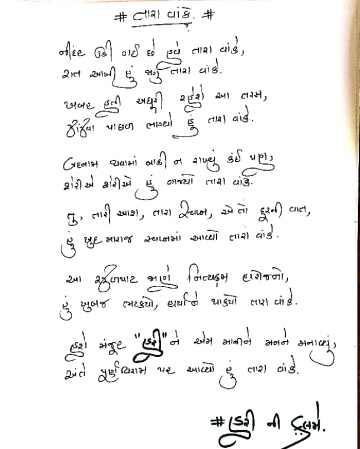 # તારા વાંકે. #
નીંદર ઉડી ગઈ છે હવે તારા વાંકે,
રાત આખી હું જાગું તારા વાંકે.
ખબર હતી અધુરી રહેશે આ તરસ,
ઝાંઝવા પાછળ ભાગ્યો હું તારા વાંકે.
બદનામ થવામાં બાકી ન રાખ્યું કંઈ પણ,
શેરીએ શેરીએ હું ગાજ્યો તારા વાંકે.
તુ, તારી આશ, તારા સ્વપ્ન, એ તો દૂરની વાત,
હું ખુદ મારાજ સ્વપ્નમાં આવ્યો તારા વાંકે.
આ રઝળપાટ જાણે નિત્યક્રમ હરરોજનો,
હું ખુબજ ભટક્યો, હાર્યો ને થાક્યો તારા વાંકે.
હશે મંજુર "હરી" ને એમ માનીને મનને મનાવ્યું,
અંતે પૂર્ણવિરામ પર આવ્યો હું તારા વાંકે.
# હરી ની કલમે.